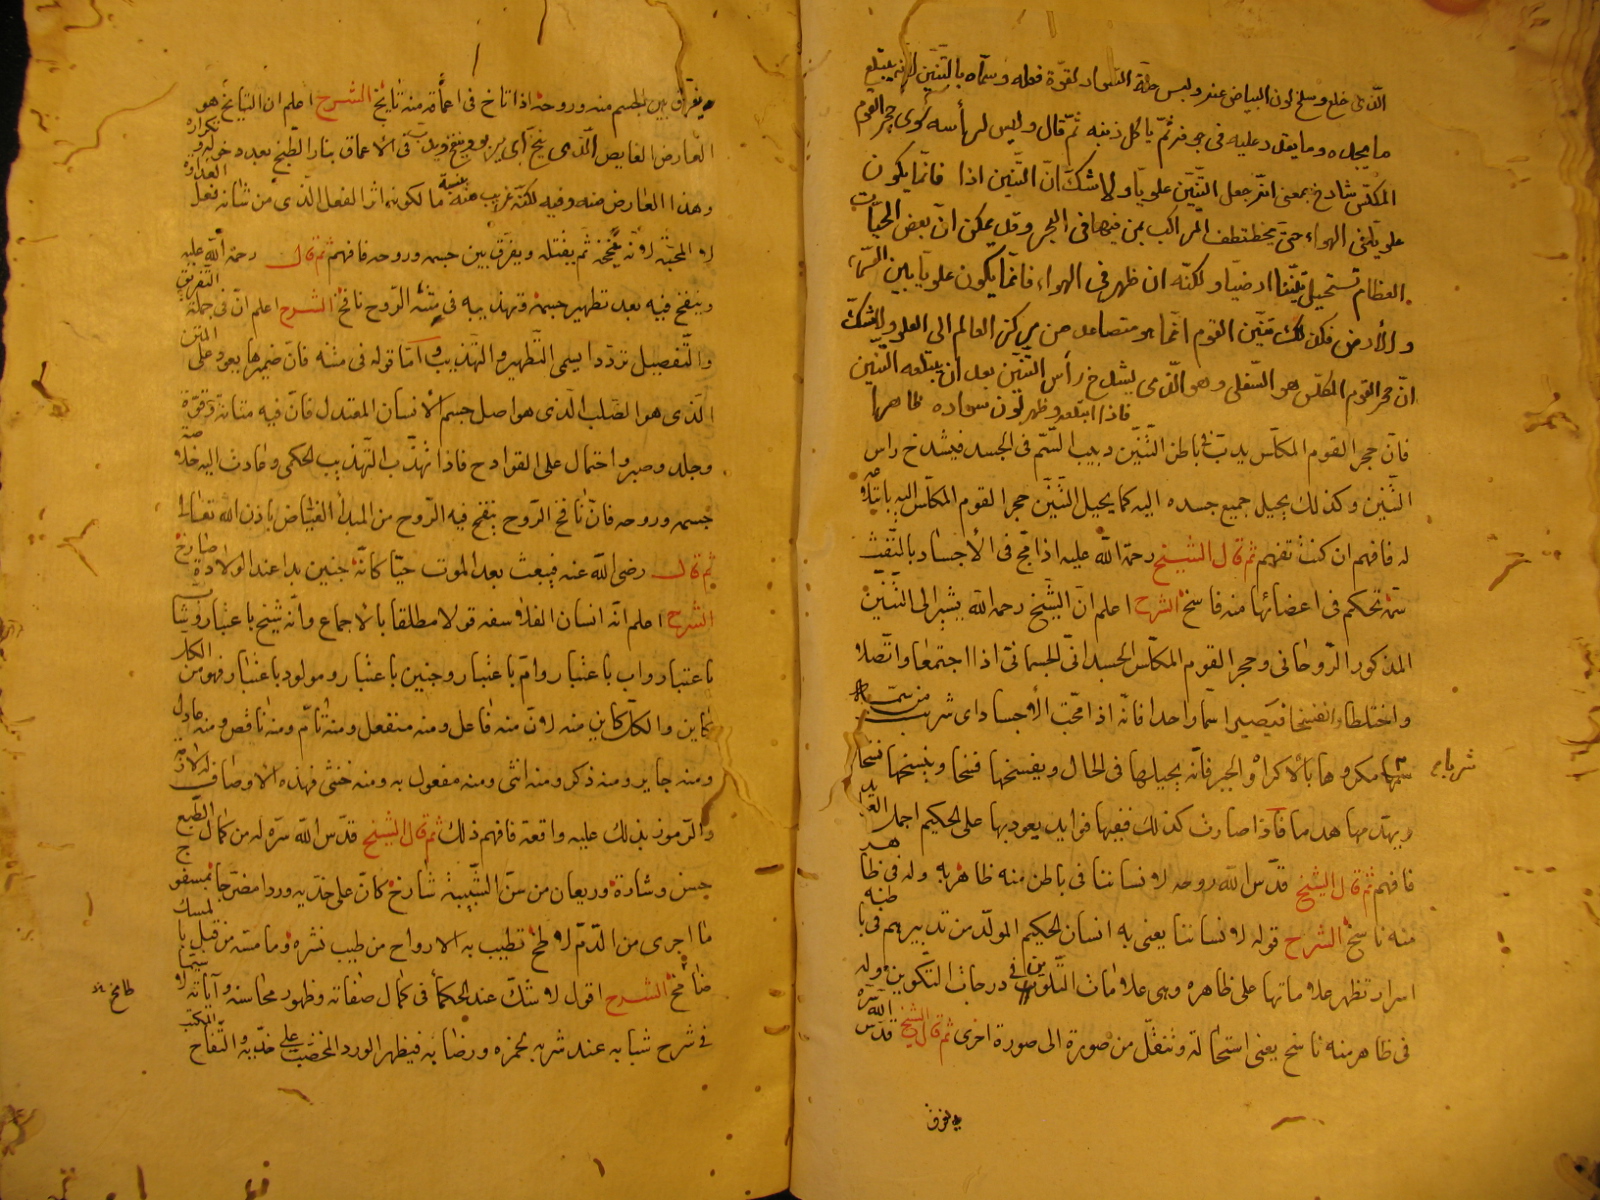 الذى خلع وسلخ لون البياض عنه ولبس حلة السواد لقوة فعله وسماه بالتنين لانه يبتلع
ما يجده وما يقد عليه فى جوفه ثم ياكل ذنبه ثم قال وليس لرأسه سوى حجر القوم
المكلس شادخ بمعنى انه جعل التنين علويا ولا شك ان التنين اذا فانما يكون
علو يلقى الهواء حتى يخطتطف المراكب بمن فيها فى البحر وقد يمكن ان بعض الحيات
العظام تستحيل تنينا ارضيا ولكنه ان ظهر فى الهواء فانما يكون علويا بين السماء
والأرض فكذلك تنين القوم انما هو متصاعد من مركز العالم الى العلو ولا شك
ان حجر القوم المكلس هو السفلى وهو الذى يشدخ رأس التنين بعد ان يبتلعه التنين
فاذا ابتلعه وظهر لون سواده ظاهرا
فان حجر القوم المكلس يدب فى باطن التنين دبيب السم فى الجسد فيشدخ راس
التنين وكذلك يحيل جميع جسده اليه كما يحيل التنين حجر القوم المكلس اليه
له فافهم ان كنت تفهم ثم قال الشيخ رحمة الله عليه اذا مج فى الأجساد بالنفث
سمه تحكم فى اعضائها منه فاسخ الشرح اعلم ان الشيخ رحمه الله يشير الى التنين
المذكور الروحانى وحجر القوم المكلس الجسدانى الجسمانى اذا اجتمعا واتصلا
واختلطا وانفسخا فيصيرا سما واحدا فانه اذا مجت الأجساد اى شربت من سمه
سمها مكروها بالاكراه والجبر فانه يحيلها فى الحال ويفسخها فسخا وينسخها نسخا
شرباً
ويهدمها هدما فاذا صارت كذلك ففيها فوايد يعود بها على الحكيم
فافهم ثم قال الشيخ قدس الله روحه لانساننا فى باطن منه ظاهر به وله فى ظا
منه ناسخ الشرح قوله لانساننا يعنى به انسان الحكيم المولد من تدبيرهم فى با
طنه
اسرار تظهر علاماتها على ظاهره وهى علامات التلوين فى درجات التكوين وله
فى ظاهر منه ناسخ يعنى استحالة وتنقل من صورة الى صورة اخرى ثم قال الشيخ قدس الله سره
يفرق
يفرق بين الجسم منه وروحه اذا تاخ فى اعماقه منه تايخ الشرح اعلم ان التايخ هو
العارض الغايص الذى فى الاعماق بنار الطبخ بعد
وهذا العارض منه وفيه لكنه غريب عنه ما لكونه اثر الفعل الذى من شانه فعل
لا المحبة لأنه ثم يقتله ويفرق بين جسمه وروحه فافهم ثم قال رحمة الله عليه
وينفخ فيه بعد تطهير جسمه وتهذيبه فى متنه الروح نافخ الشرح اعلم ان فى جملة
التفريق
والتفصيل تردد ايسمى التطهير والتهذيب واما قوله فى متنه فان ضميرها يعود على
المتن
الذى هو الصلب الذى هو اصل جسم الانسان المعتدل فان فيه متانة وقوة
وجلد وصبر واحتمال على القوادح فاذا تهذب التهذيب الحكمى وعادت اليه
جسمه وروحه فان نافخ الروح ينفخ فيه الروح من المبدأ الفياض باذن الله تعالى
ثم قال رضى الله عنه فيبعث بعد الموت حيا كانه جنين بدا عند الولادة صارخ
الشرح اعلم انه انسان الفلاسفه قولا مطلقا بالاجماع وانه شيخ باعتبار وشا
ب
باعتبار واب باعتبار وام باعتبار وجنين باعتبار ومولود باعتبار فهو من الكل
كاين والكل كاين منه لان منه فاعل ومنه منفعل ومنه تام ومنه ناقص ومنه عادل
ومنه جاير ومنه ذكر ومنه انثى ومنه مفعول به ومنه خنثى فهذه الاوصاف
والرموز بذلك عليه واقعة فافهم ذلك ثم قال الشيخ قدس الله سره له من كمال الطبع
حسن وشارة وريعان من سن الشبيبة شارخ كان على خديه وردا مضرجا بمسفو
ح
ما اجرى من الدم لاطخ تطيب به الارواح من طيب نشره وما مسه من قبل با
لمسك
ضامخ الشرح اقول لا شك عند الحكماء فى كمال صفاته وظهور محاسنه وآياته لا
سيما
طامخ
فى شرح شبابه عند شربه لخمره ورضابه فيظهر الورد المخضب على خديه والتفاح